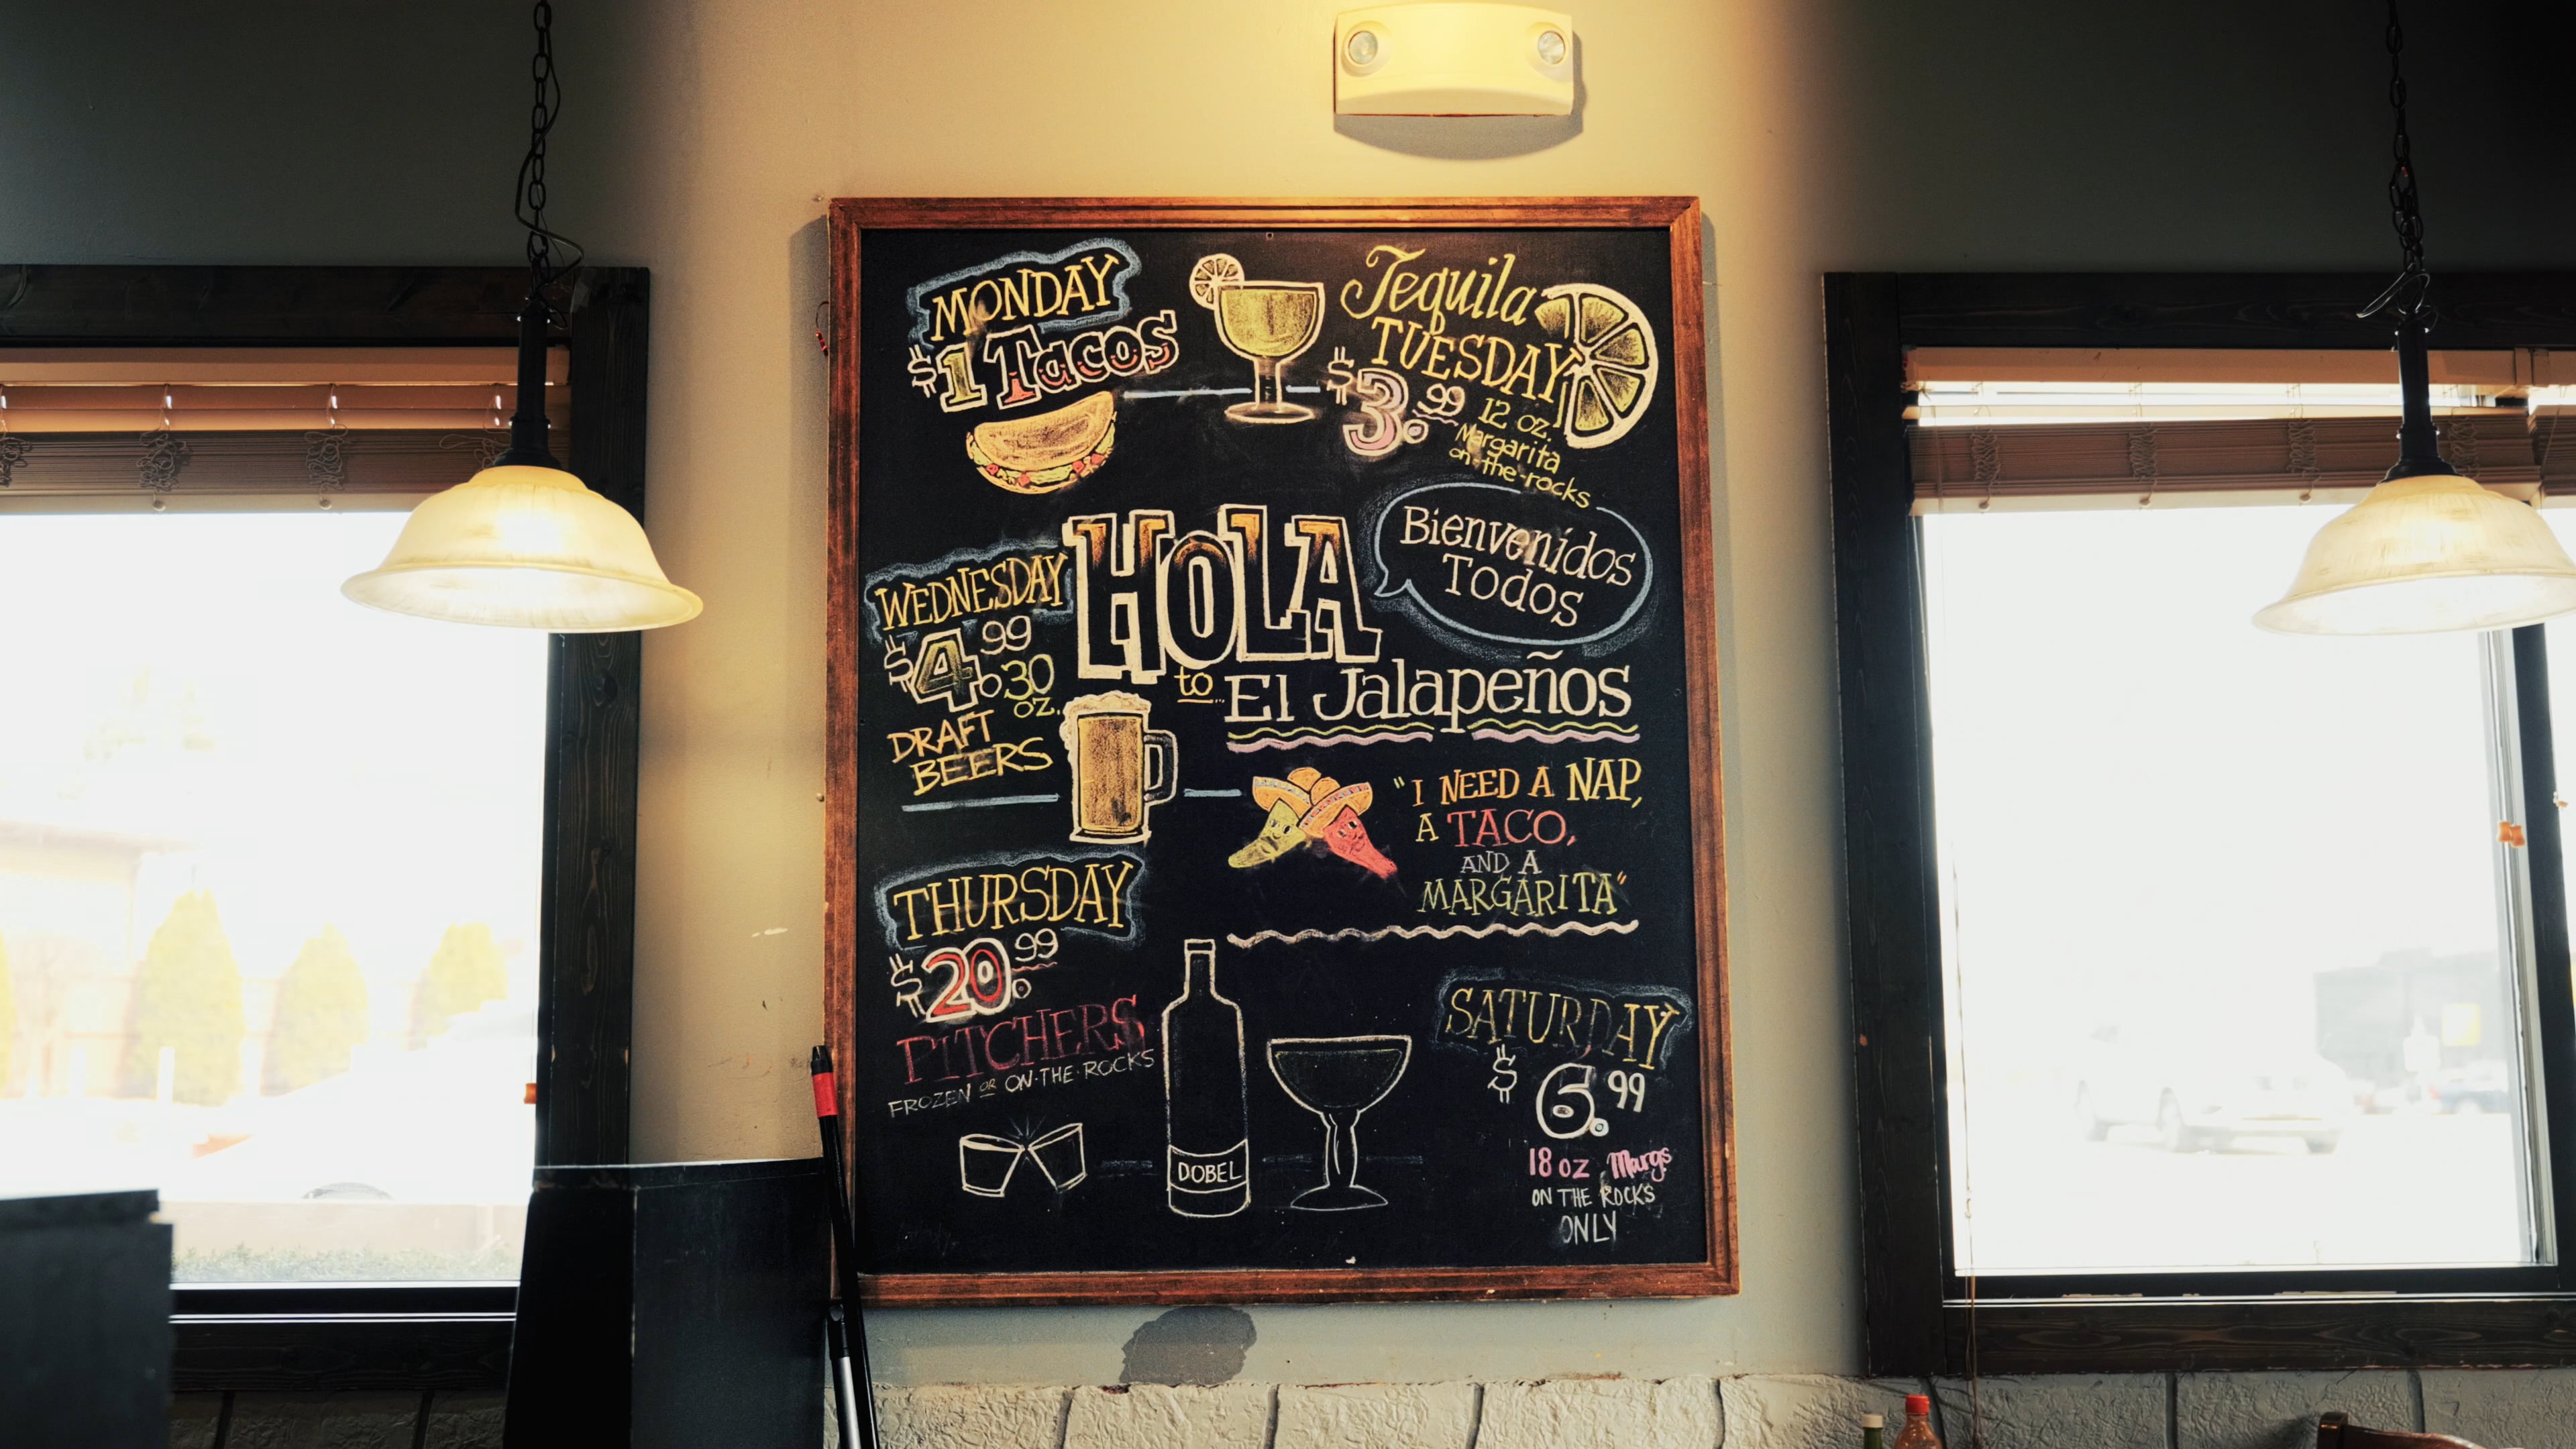 MONDAY
$1 Tacos
Tequila
TUESDAY
$3.99 12 oz.
Margarita
on-the-rocks
HOLA
to El Jalapeños
Bienvenidos
Todos
WEDNESDAY
$4.99 30
oz.
DRAFT
BEERS
"I NEED A NAP,
A TACO,
AND A
MARGARITA"
THURSDAY
$20.99
PITCHERS
FROZEN OR ON-THE-ROCKS
DOBEL
SATURDAY
$6.99
18 oz Margs
ON THE ROCKS
ONLY